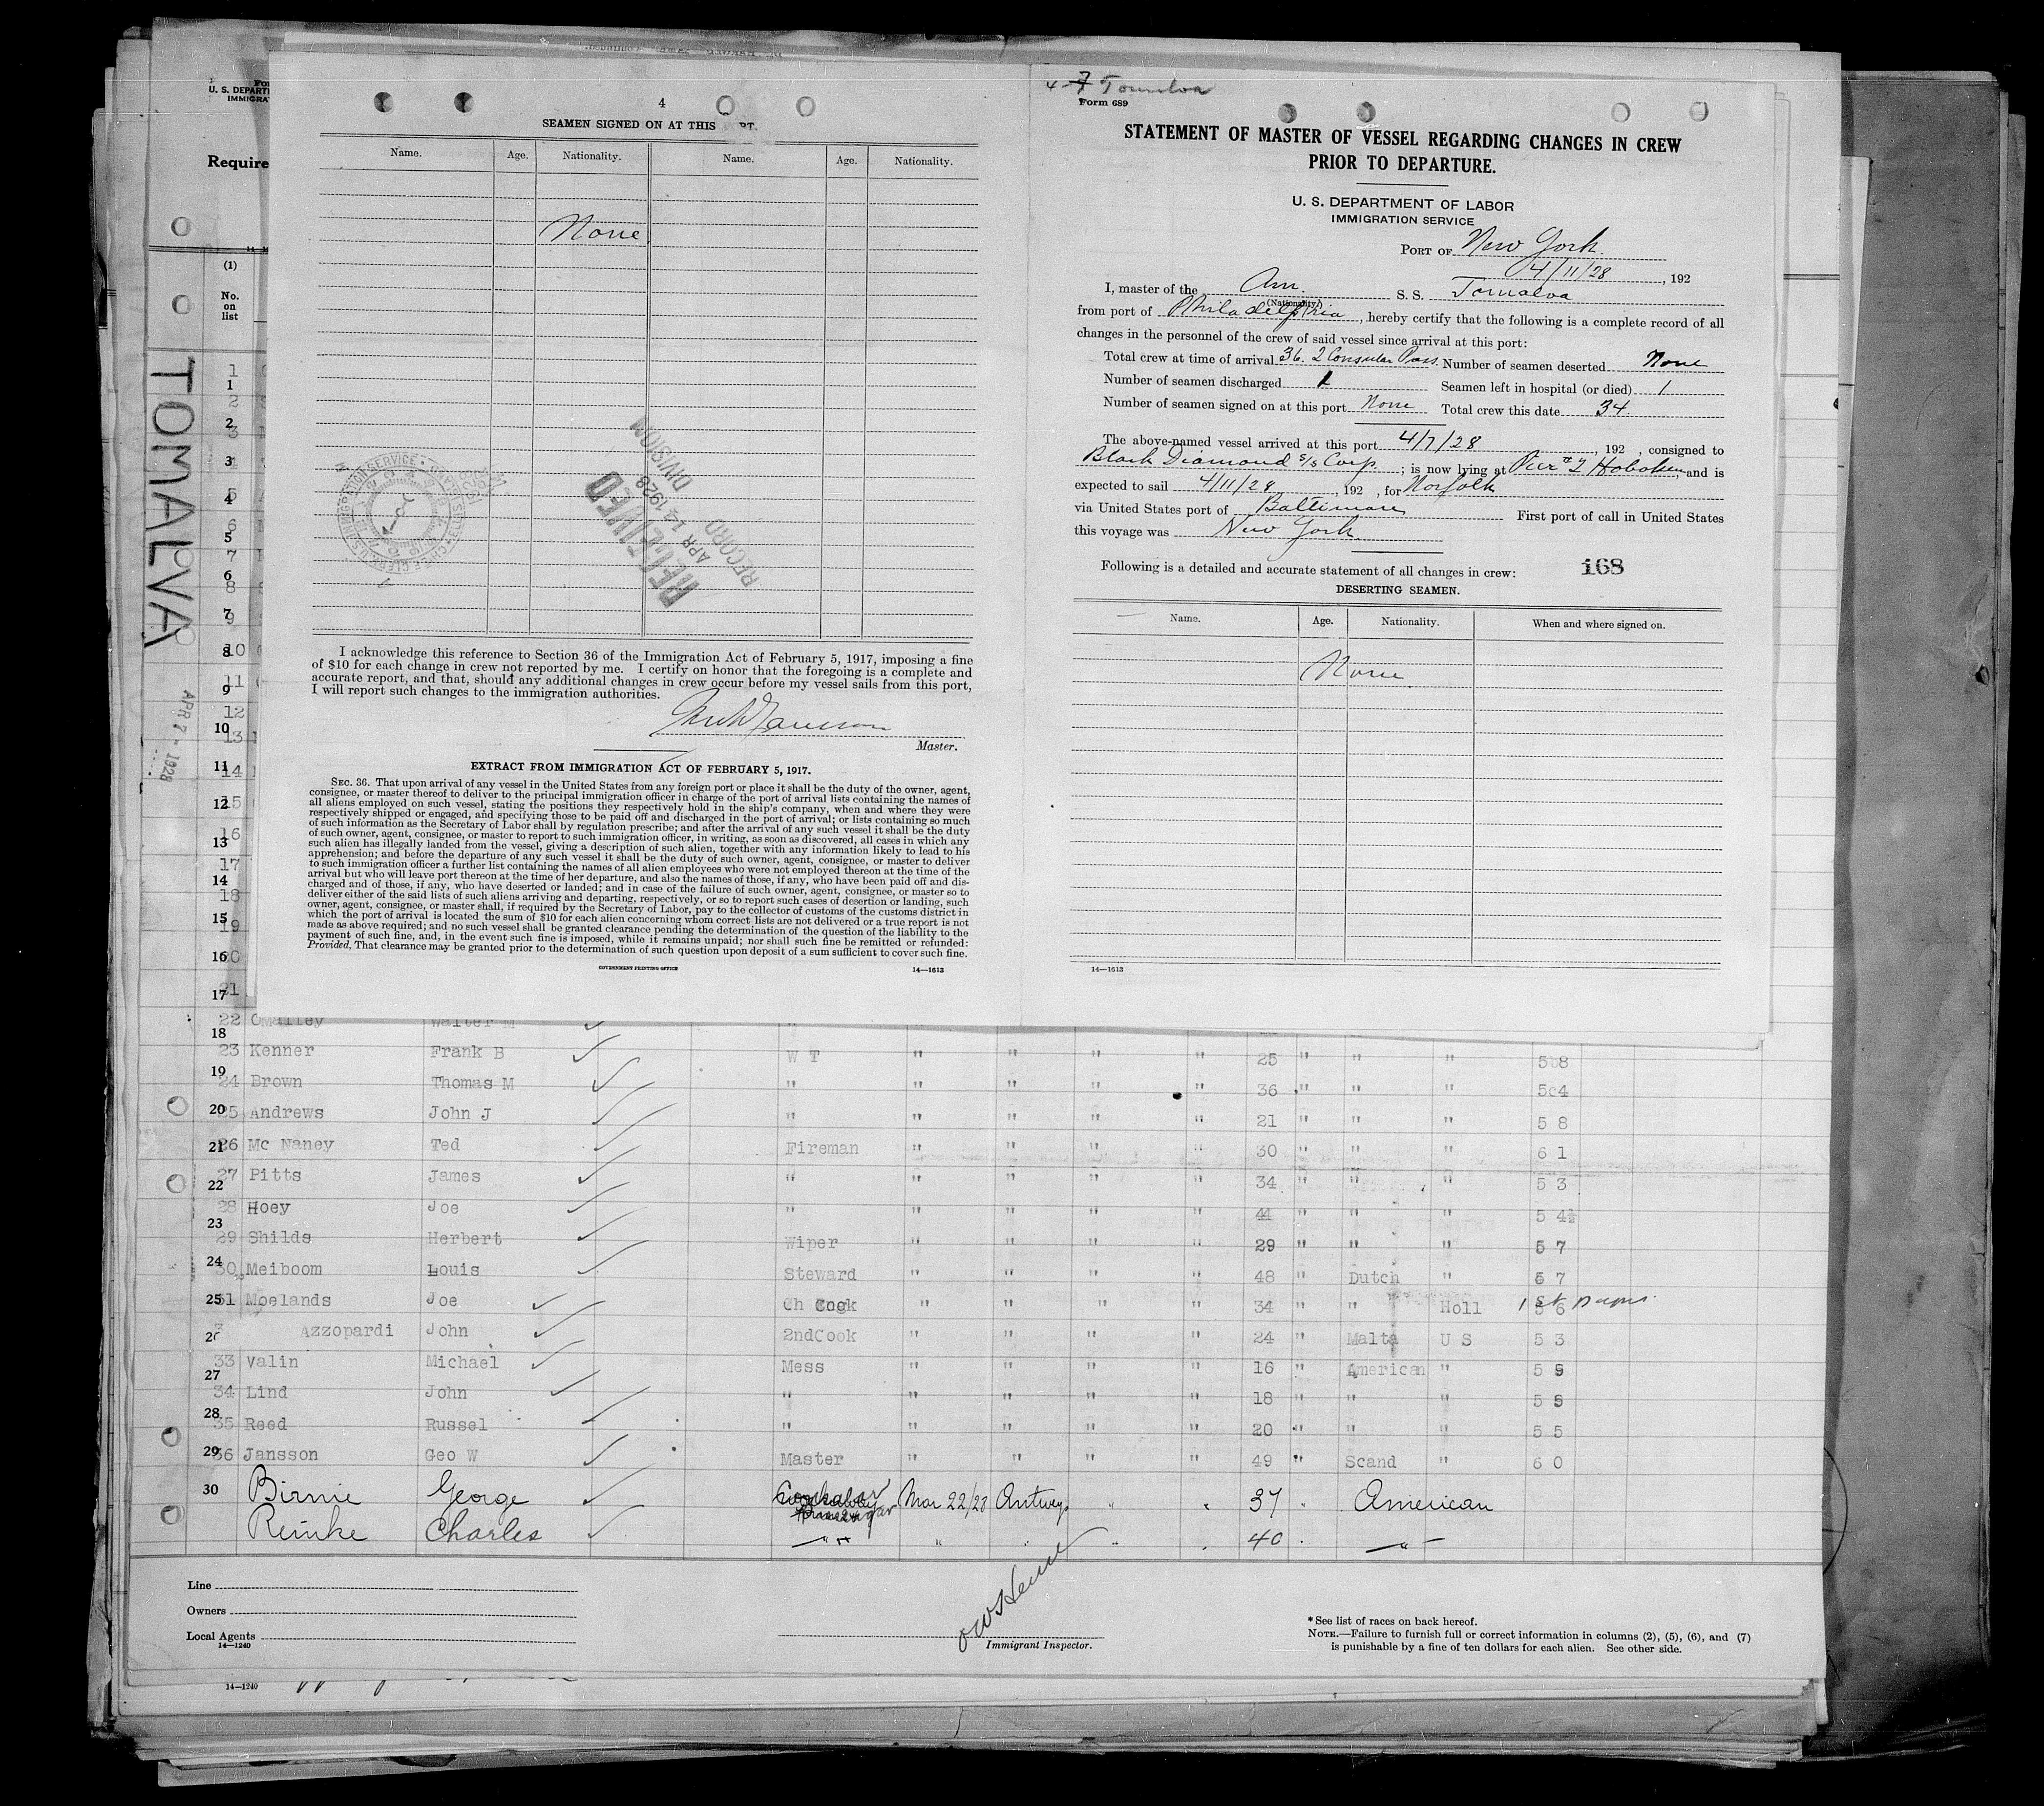 TOMALVA
APR 7 - 1928
U. S. DEPARTM
IMMIGRAT
Require
(1)
No.
on
list
4
SEAMEN SIGNED ON AT THIS RT.
Name. Age. Nationality. Name. Age. Nationality.
None
RECEIVED
APR 14 1928
RECORD
DIVISION
I acknowledge this reference to Section 36 of the Immigration Act of February 5, 1917, imposing a fine
of $10 for each change in crew not reported by me. I certify on honor that the foregoing is a complete and
accurate report, and that, should any additional changes in crew occur before my vessel sails from this port,
I will report such changes to the immigration authorities.
Master.
EXTRACT FROM IMMIGRATION ACT OF FEBRUARY 5, 1917.
SEC. 36. That upon arrival of any vessel in the United States from any foreign port or place it shall be the duty of the owner, agent,
consignee, or master thereof to deliver to the principal immigration officer in charge of the port of arrival lists containing the names of
all aliens employed on such vessel, stating the positions they respectively hold in the ship's company, when and where they were
respectively shipped or engaged, and specifying those to be paid off and discharged in the port of arrival; or lists containing so much
of such information as the Secretary of Labor shall by regulation prescribe; and after the arrival of any such vessel it shall be the duty
of such owner, agent, consignee, or master to report to such immigration officer, in writing, as soon as discovered, all cases in which any
such alien has illegally landed from the vessel, giving a description of such alien, together with any information likely to lead to his
apprehension; and before the departure of any such vessel it shall be the duty of such owner, agent, consignee, or master to deliver
to such immigration officer a further list containing the names of all alien employees who were not employed thereon at the time of the
arrival but who will leave port thereon at the time of her departure, and also the names of those, if any, who have been paid off and dis-
charged and of those, if any, who have deserted or landed; and in case of the failure of such owner, agent, consignee, or master so to
deliver either of the said lists of such aliens arriving and departing, respectively, or so to report such cases of desertion or landing, such
owner, agent, consignee, or master shall, if required by the Secretary of Labor, pay to the collector of customs of the customs district in
which the port of arrival is located the sum of $10 for each alien concerning whom correct lists are not delivered or a true report is not
made as above required; and no such vessel shall be granted clearance pending the determination of the question of the liability to the
payment of such fine, and, in the event such fine is imposed, while it remains unpaid; nor shall such fine be remitted or refunded:
Provided, That clearance may be granted prior to the determination of such question upon deposit of a sum sufficient to cover such fine.
GOVERNMENT PRINTING OFFICE 14—1613
4-7 Tomalva
Form 689
STATEMENT OF MASTER OF VESSEL REGARDING CHANGES IN CREW
PRIOR TO DEPARTURE.
U. S. DEPARTMENT OF LABOR
IMMIGRATION SERVICE
PORT OF New York
4/11/28, 192
I, master of the Am. S. S. Tomalva
(Nationality.)
from port of Philadelphia, hereby certify that the following is a complete record of all
changes in the personnel of the crew of said vessel since arrival at this port:
Total crew at time of arrival 36. 2 Consular Pass. Number of seamen deserted None
Number of seamen discharged 1 Seamen left in hospital (or died) 1
Number of seamen signed on at this port None Total crew this date 34.
The above-named vessel arrived at this port 4/7/28, 192 , consigned to
Black Diamond S/S Corp; is now lying at Pier #2 Hoboken, and is
expected to sail 4/11/28, 192 , for Norfolk
via United States port of Baltimore First port of call in United States
this voyage was New York
Following is a detailed and accurate statement of all changes in crew: 168
DESERTING SEAMEN.
Name. Age. Nationality. When and where signed on.
None
14—1613
22 OMalley Walter M "
23 Kenner Frank B W T " " " " 25 " " " 5 8
24 Brown Thomas M " " " " " 36 " " " 5 4
25 Andrews John J " " " " " 21 " " " 5 8
26 Mc Naney Ted Fireman " " " " 30 " " " 6 1
27 Pitts James " " " " " 34 " " " 5 3
28 Hoey Joe " " " " " 44 " " " 5 4½
29 Shilds Herbert Wiper " " " " 29 " " " 5 7
30 Meiboom Louis Steward " " " " 48 " Dutch " 6 7
31 Moelands Joe Ch Cook " " " " 34 " " Holl 5 6
Azzopardi John 2ndCook " " " " 24 " Malta U S 5 3
33 Valin Michael Mess " " " " 16 " American " 5 5
34 Lind John " " " " " 18 " " " 5 5
35 Reed Russel " " " " " 20 " " " 5 5
36 Jansson Geo W Master " " " " 49 " Scand " 6 0
30 Birnie George Mar 22/28 Antwerp " " 37 " American
Reinke Charles " " " " " 40 " "
Line
Owners
Local Agents
14—1240
Immigrant Inspector.
* See list of races on back hereof.
NOTE.—Failure to furnish full or correct information in columns (2), (5), (6), and (7)
is punishable by a fine of ten dollars for each alien. See other side.
14—1240